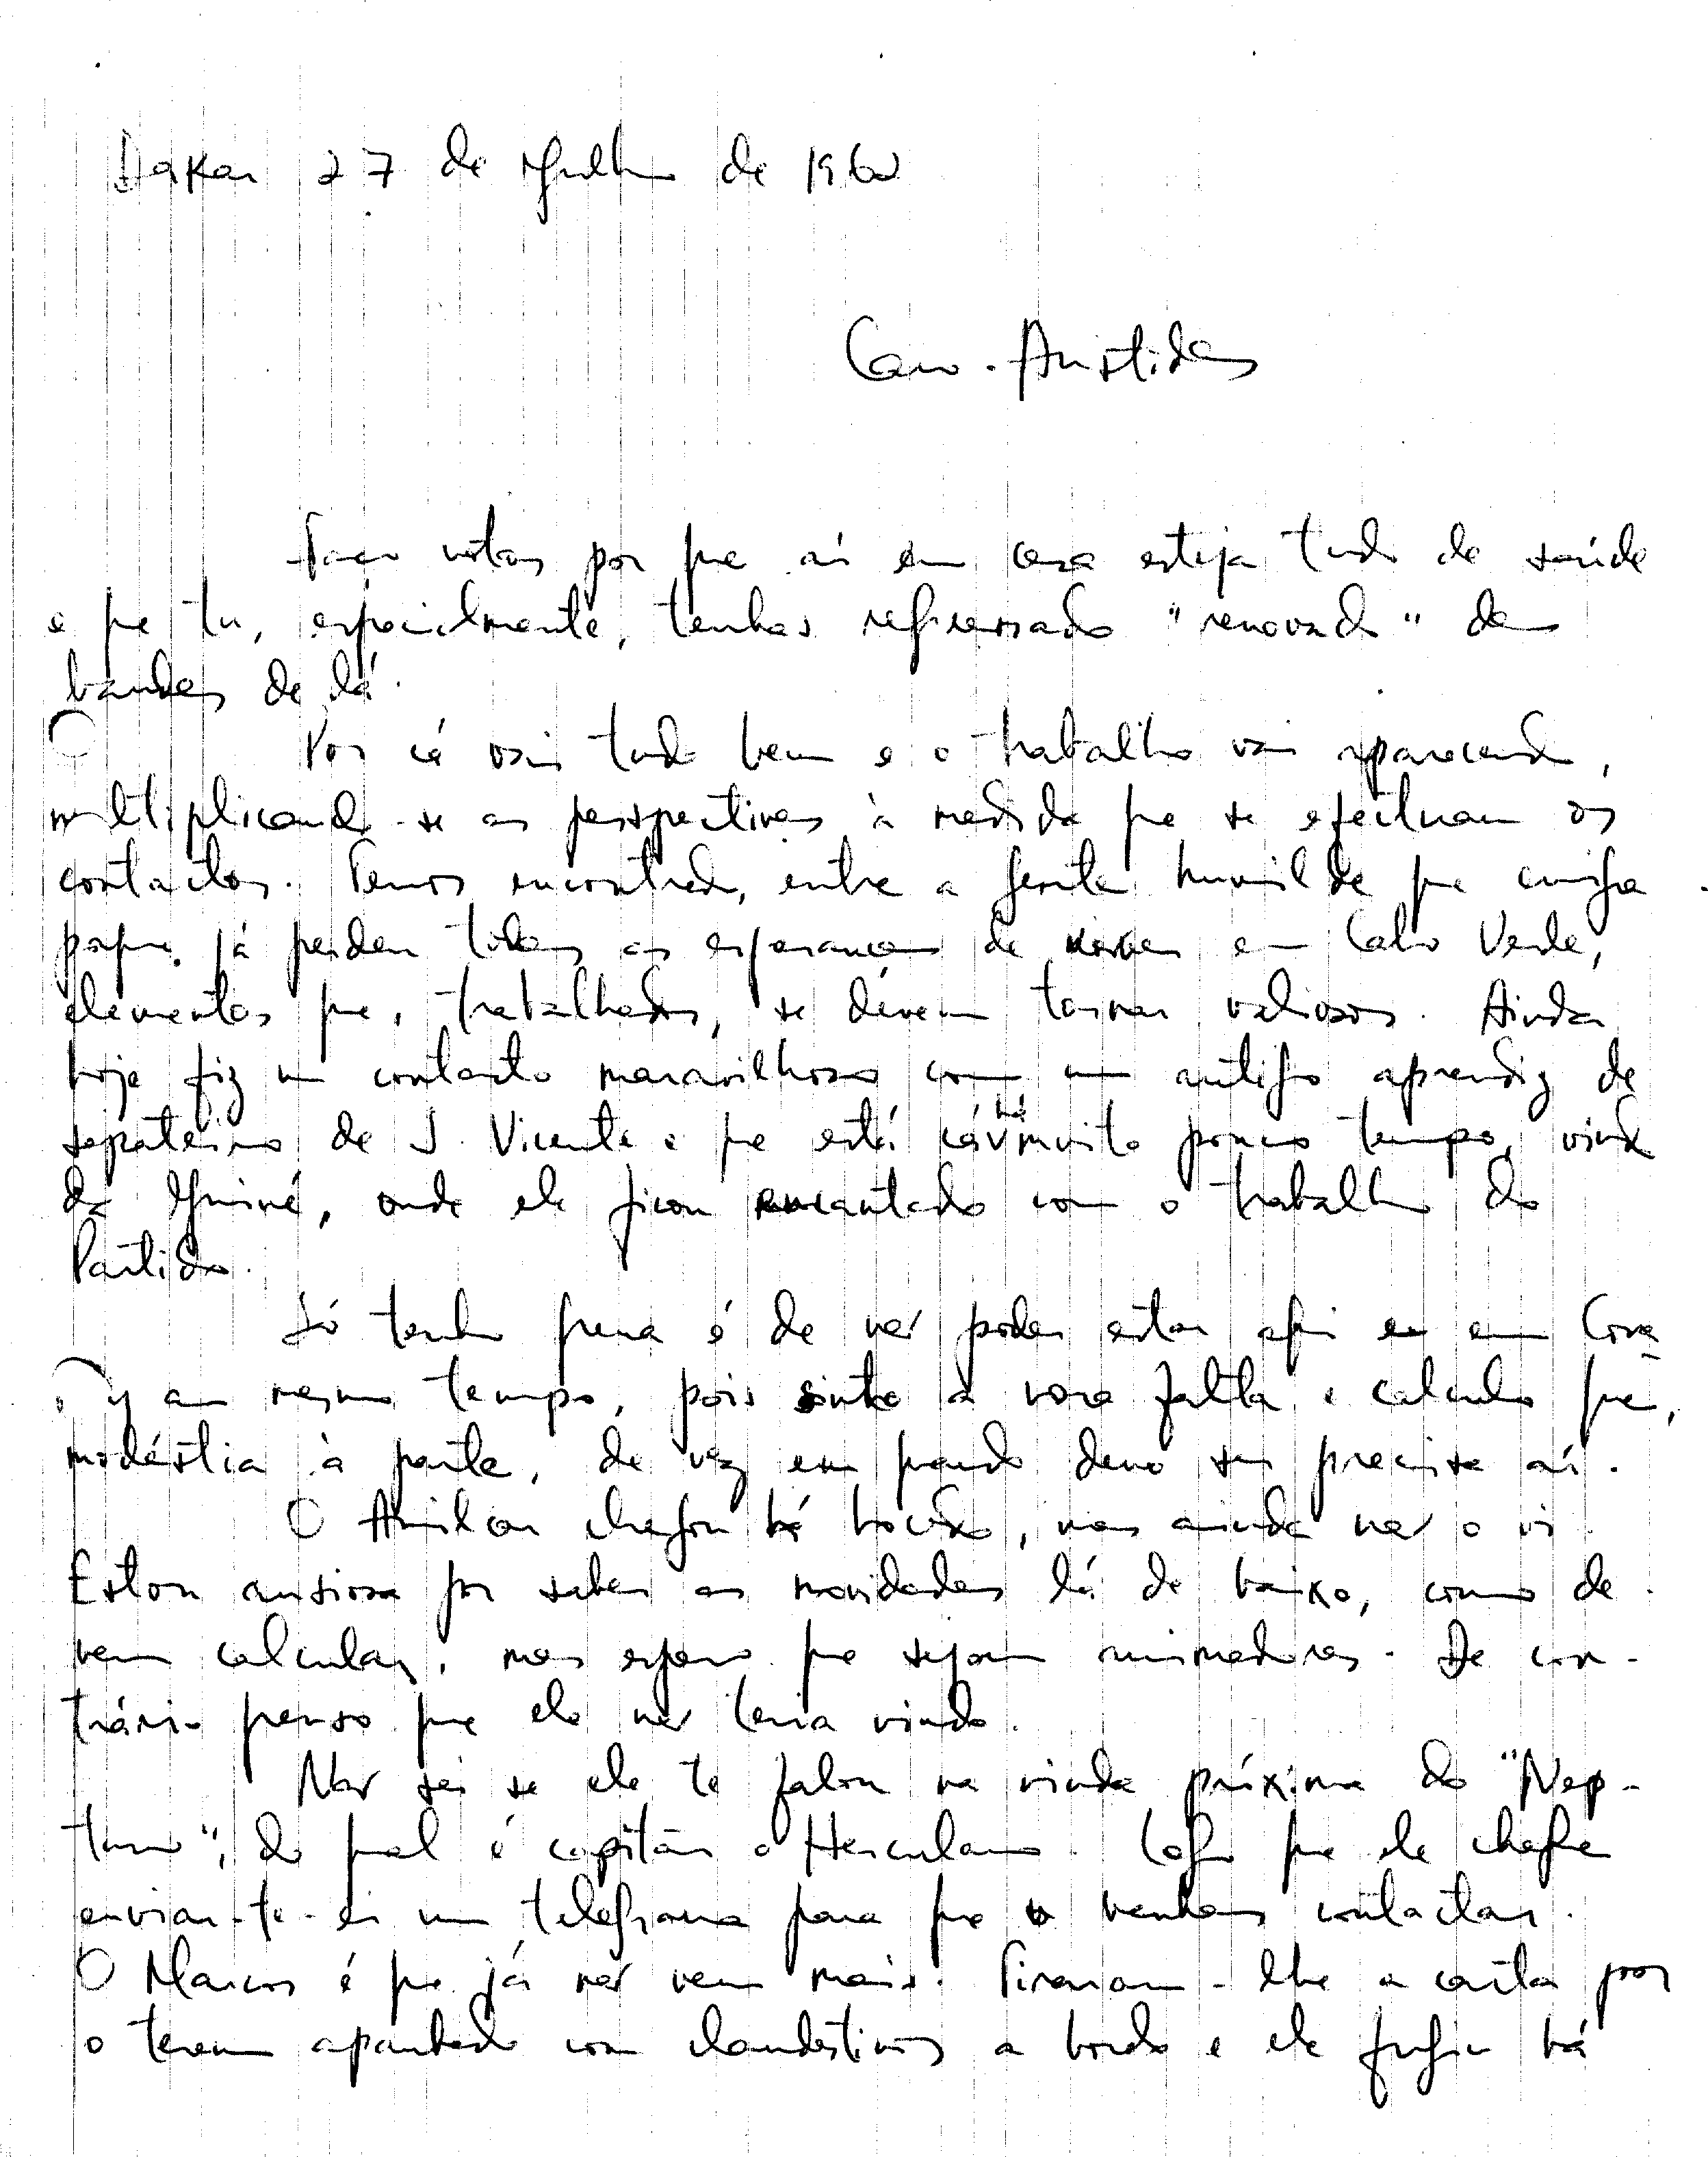 Dakar 27 de Julho de 1962
Caro Aristides
Faço votos por que aí em casa esteja tudo de saúde
e que tu, especialmente, tenhas regressado "renovado" das
bandas de lá.
Por cá vai tudo bem e o trabalho vai aparecendo,
multiplicando-se as perspectivas à medida que se efectuam os
contactos. Temos encontrado, entre a gente humilde que emigra
porque já perdeu todas as esperanças de viver em Cabo Verde,
elementos que, trabalhados, se devem tornar valiosos. Ainda
hoje fiz um contacto maravilhoso com um antigo aprendiz de
sapateiro de S. Vicente e que está cá há muito pouco tempo, vindo
da Guiné, onde ele ficou encantado com o trabalho do
Partido.
Só tenho pena é de não poder estar aqui e em Cona-
ky ao mesmo tempo, pois sinto a vossa falta e calculo que,
modéstia à parte, de vez em quando devo ser precisa aí.
O Amilcar chegou há bocado, mas ainda não o vi.
Estou ansiosa por saber as novidades lá de baixo, como de-
vem calcular, mas espero que sejam animadoras. De con-
trário penso que ele não teria vindo.
Não sei se ele te falou na vinda próxima do "Nep-
tuno", do qual é capitão o Herculano. Logo que ele chegue
enviar-te-ei um telegrama para que o venhas contactar.
O Marcos é que já não vem mais. Tiraram-lhe a carta por
o terem apanhado com clandestinos a bordo e ele fugiu há